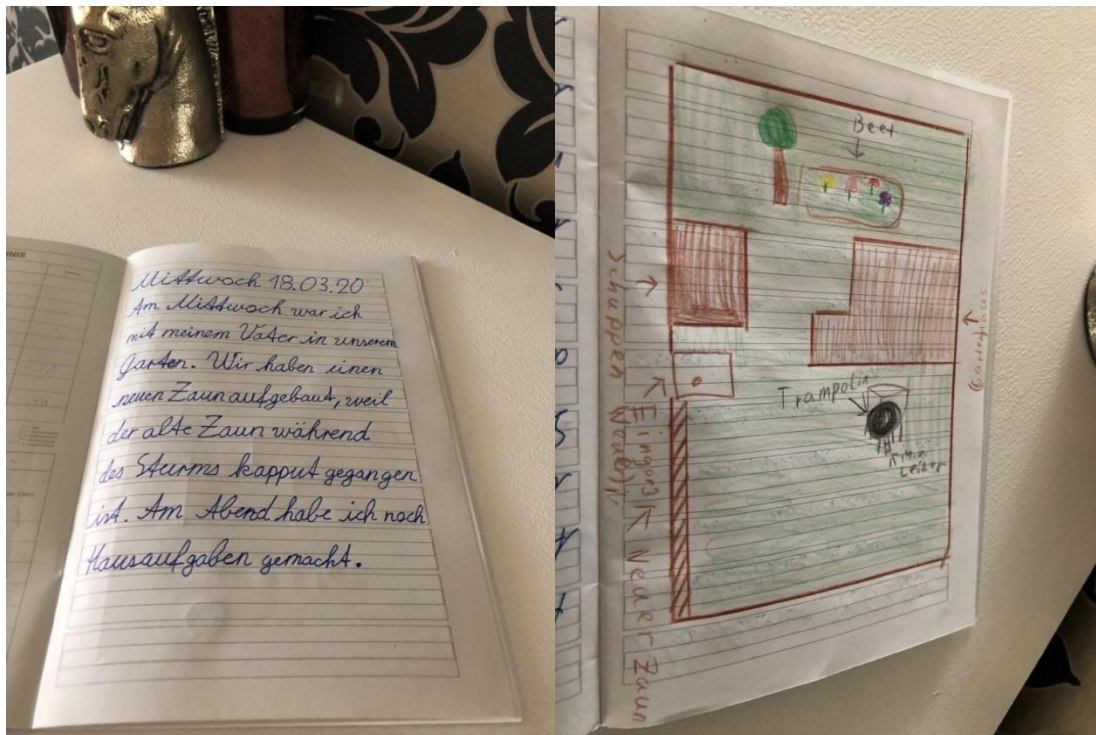 NIS
Mittwoch 18.03.20
Am Mittwoch war ich
mit meinem Vater in unserem
Garten. Wir haben einen
neuen Zaun aufgebaut, weil
der alte Zaun während
des Sturms kapput gegangen
ist. Am Abend habe ich noch
Hausaufgaben gemacht.
Beet
Schuppen
Trampolin
Leiter
Neuer Zaun